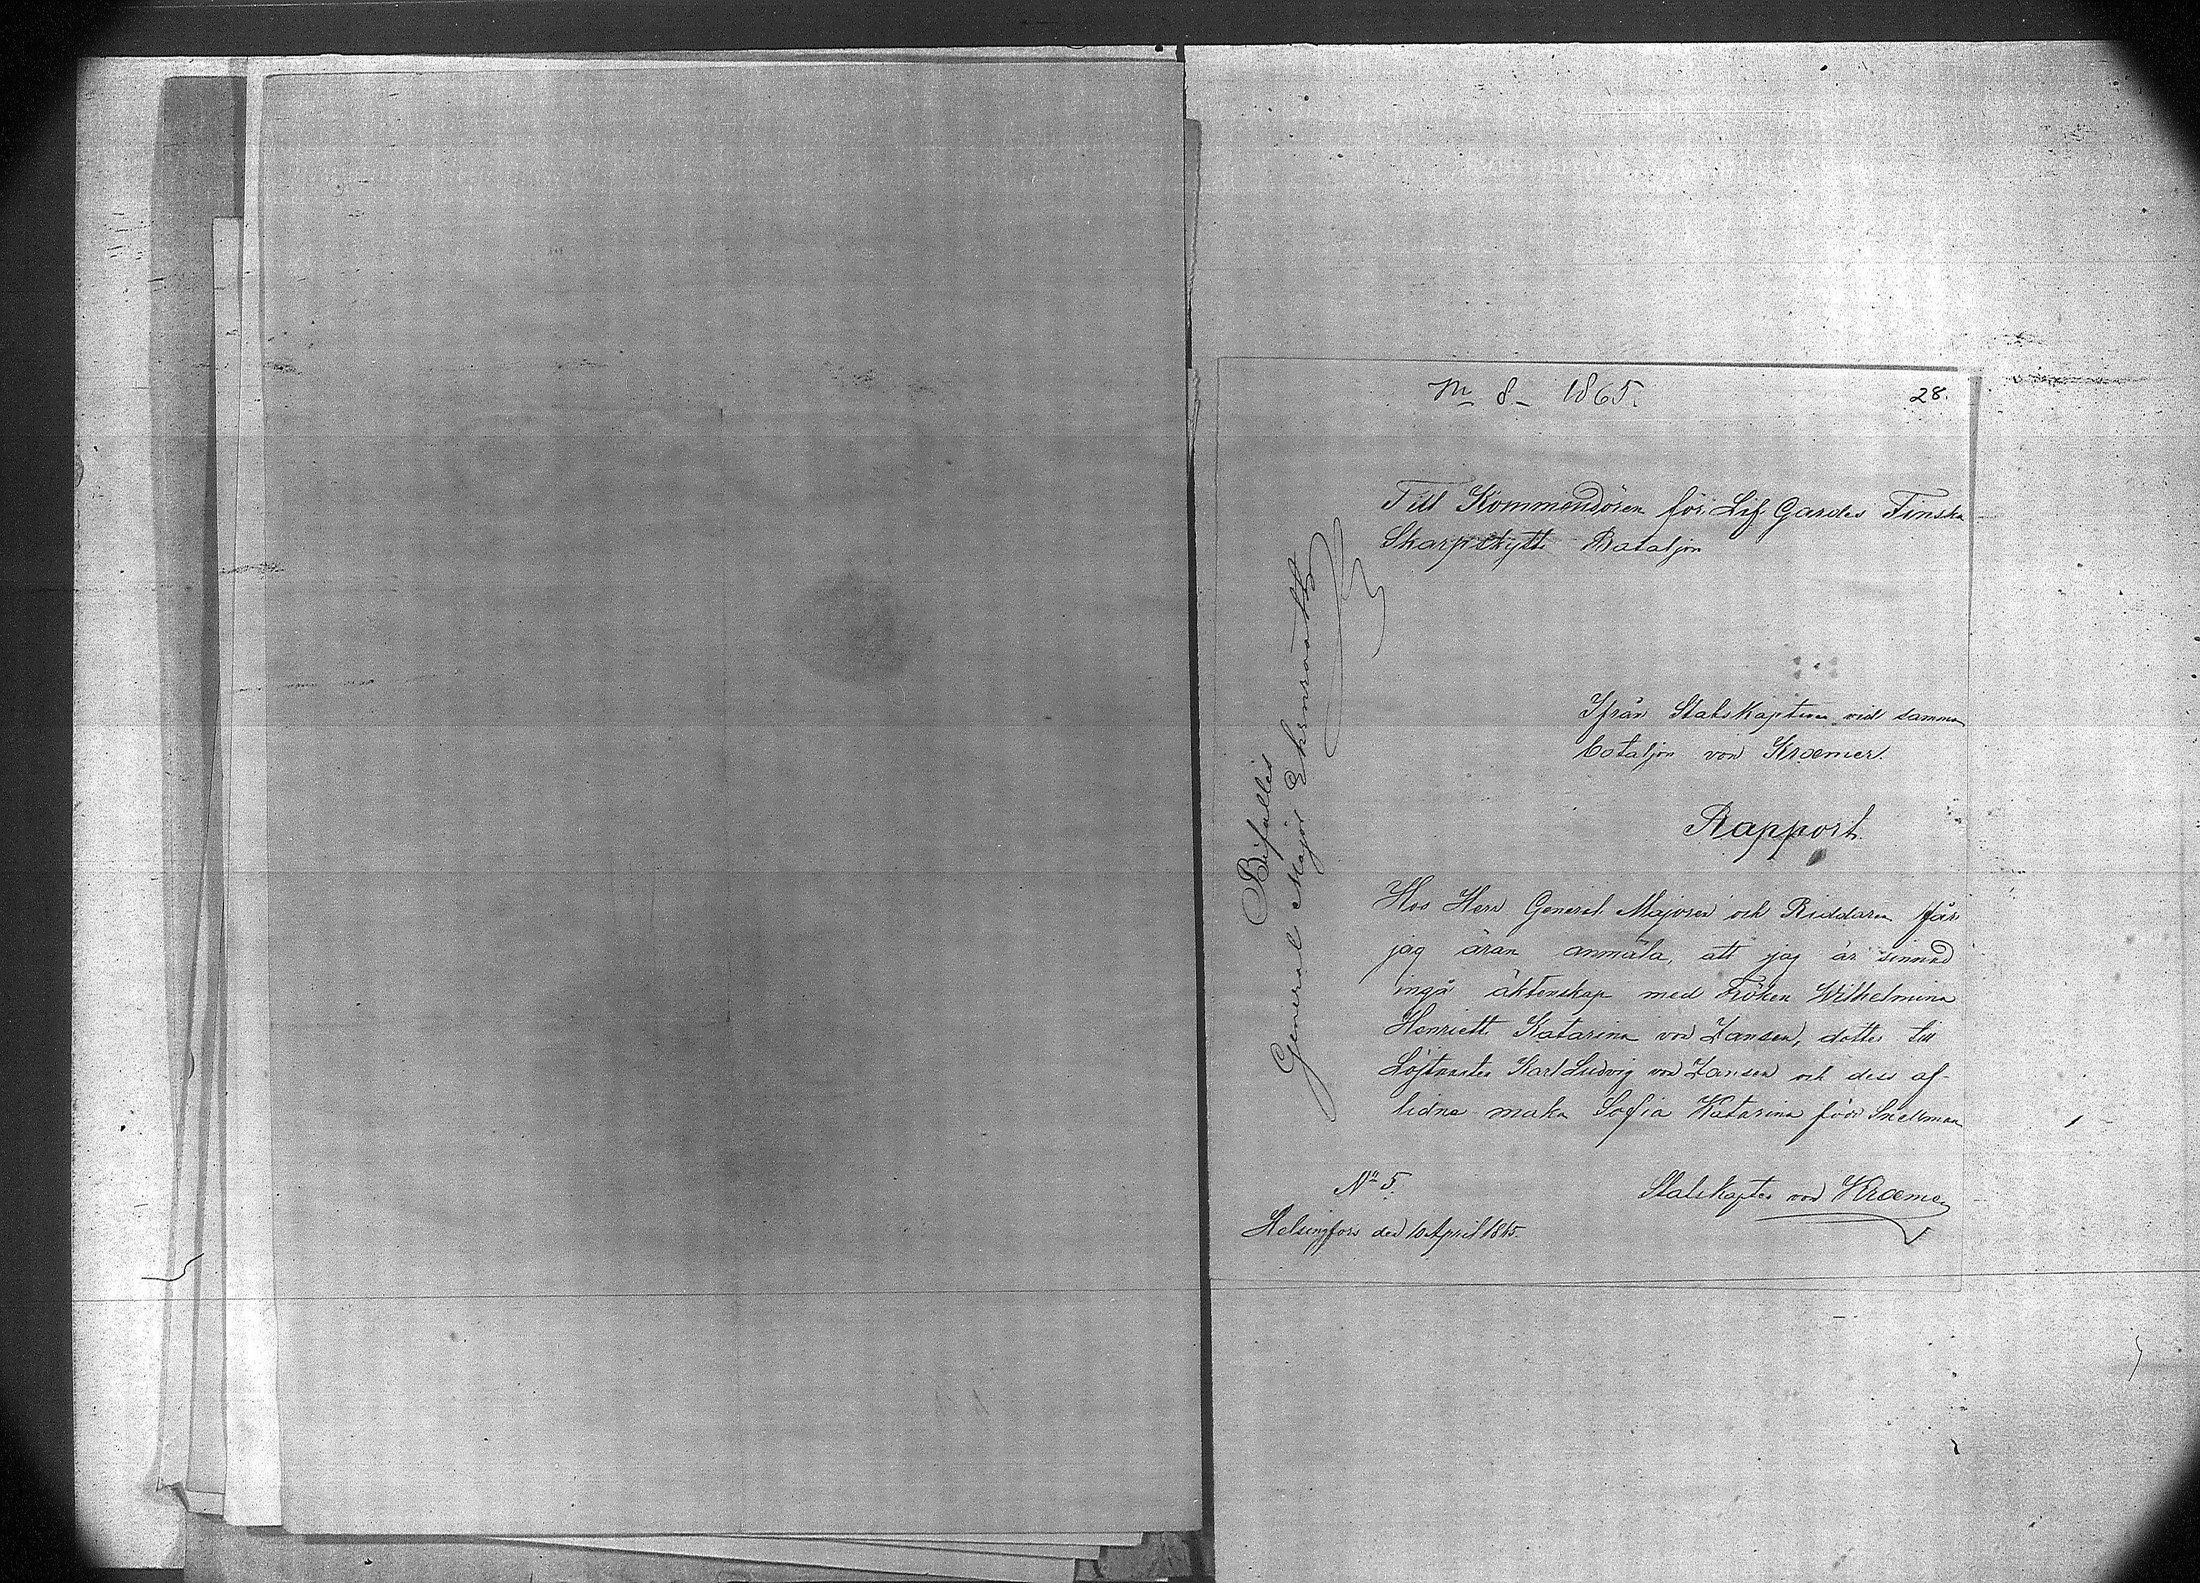 No 8 - 1865.
28.
Till Kommendören för Lif Gardes Finska
Skarpskytte Bataljon
Ifrån Stabskapten vid samma
bataljon von Kræmer.
Rapport.
Hos Herr General Majoren och Riddaren får
jag äran anmäla, att jag är sinnad
ingå äktenskap med Fröken Wilhelmina
Henriett Katarina von Jansen, dotter till
Löjtnanten Karl Ludvig von Jansen och dess af-
lidne maka Sofia Katarina född Snellman
Stabskapten von Kræmer
No 5.
Helsingfors den 10 April 1865.
Bifalles
General Major